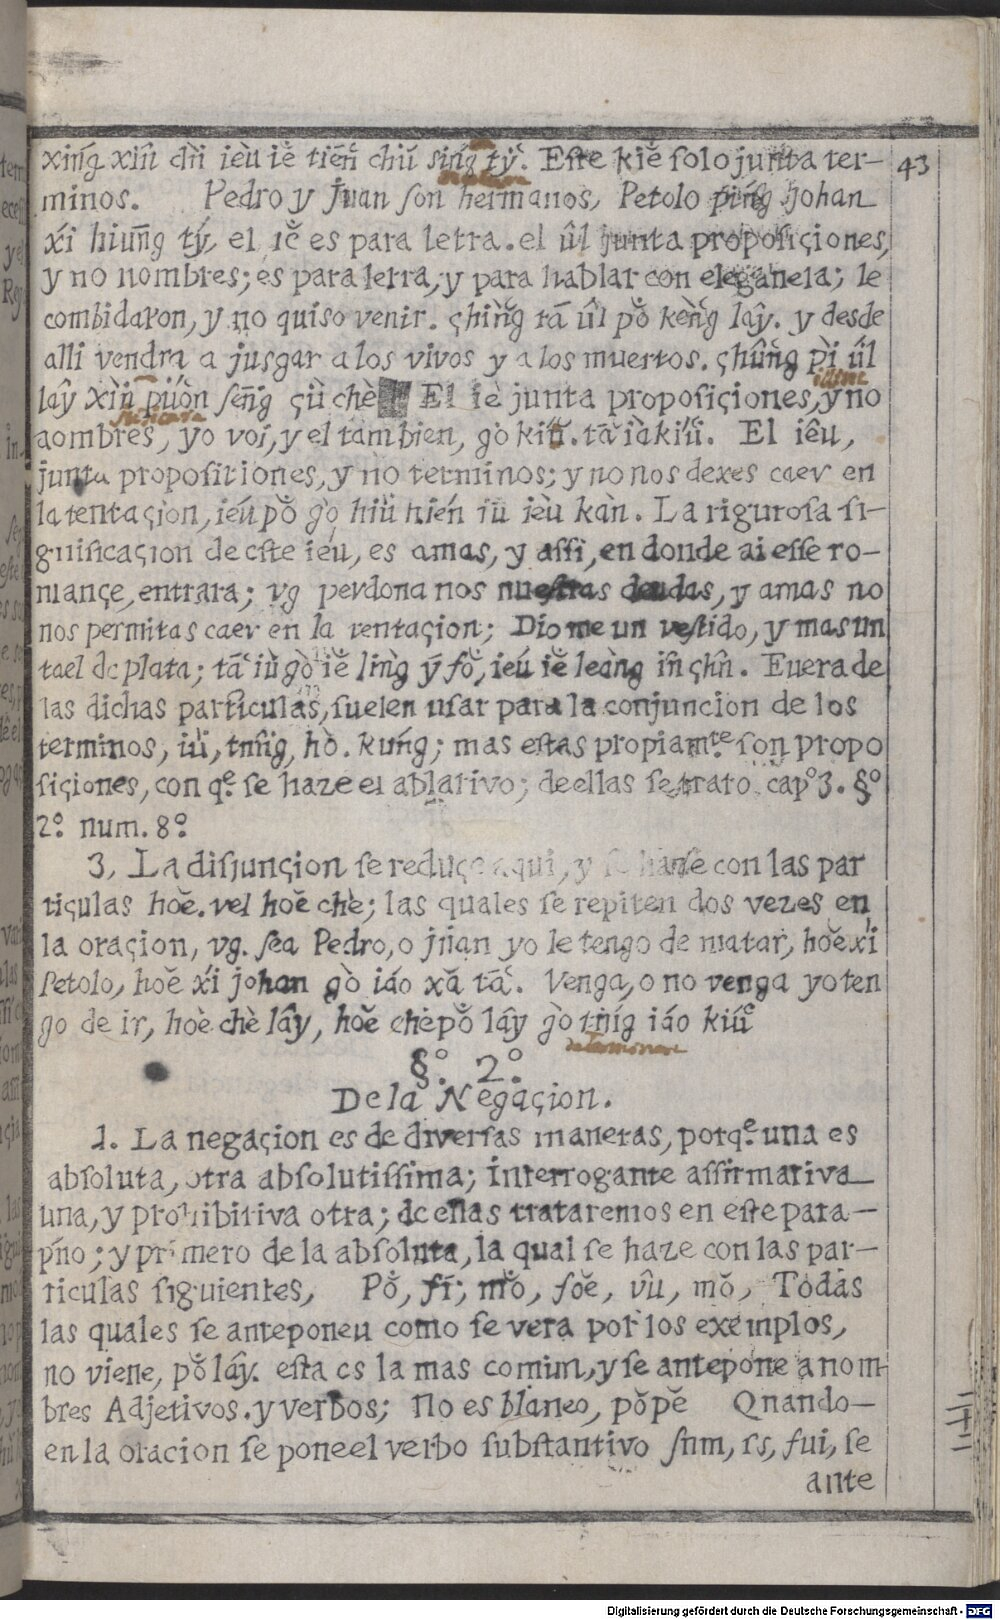 xińg xiñ chì ièu iĕ tiēñ chiŭ sińg tỳ. Eſte kiĕ ſolo junta ter— 43
minos. Pedro y Juan ſon hermanos, Petolo pińg johan
xí hiuñg tý, el iĕ es para letra. el ûl junta propoſiçiones,
y no nombres; es para letra, y para hablar con elegancia; le
combidaron, y no quiso venir. çhiǹg tā ûl pŏ keǹg lây. y desde
alli vendra a jusgar a los vivos y a los muertos. çhûng pì úl
lây xìn puón señg çù chè El iè junta propoſiçiones, y no
nombres, yo voi, y el tambien, gò kiú. tā ià kiú. El iêu,
junta propoſitiones, y no terminos; y no nos dexes caer en
la tentaçion, iéu pŏ gò hiù hién iū ièu kàn. La riguroſa ſi—
gnificaçion de eſte iéu, es amas, y aſſi, en donde ai eſſe ro—
mançe, entrara; vg perdona nos nueſtras deudas, y amas no
nos permitas caer en la tentaçion; Dio me un veſtido, y mas un
tael de plata; tā iù gò iĕ lìng ȳ fŏ, ieú iĕ leàng în çhî. Fuera de
las dichas particulas, ſuelen uſar para la conjuncion de los
terminos, iù, tuńg, hò. kuńg; mas eſtas propiam.te ſon propo
ſiçiones, con q.e se haze el ablativo; de ellas se trato cap.o 3. §.o
2.o num. 8.o
3, La disjunçion se reduçe aqui, y se haze con las par
ticulas hoĕ. vel hoĕ chè; las quales se repiten dos vezes en
la oraçion, vg. ſea Pedro, o juan yo le tengo de matar, hoĕ xí
Petolo, hoĕ xí johan gò iáo xă tā. Venga, o no venga yo ten
go de ir, hoĕ chè lây, hoĕ chè pŏ lây gò tińg iáo kiú
determinare
§.o 2.o
De la Negaçion.
1. La negaçion es de diverſas maneras, porq.e una es
abſoluta, otra abſolutiſſima; interrogante aſſirmativa
una, y prohibitiva otra; de ellas trataremos en eſte para—
pño; y primero de la abſoluta, la qual se haze con las par—
ticulas ſiguientes, Pŏ, fī; mŏ, fŏe, vû, mŏ, Todas
las quales se anteponen como se vera por los exemplos,
no viene, pŏ lây. eſta es la mas comun, y se antepone a nom
bres Adjetivos. y verbos; No es blanco, pŏ pĕ Quando—
en la oracion se pone el verbo subſtantivo ſum, es, fui, se
ante
Digitalisierung gefördert durch die Deutsche Forschungsgemeinschaft - DFG